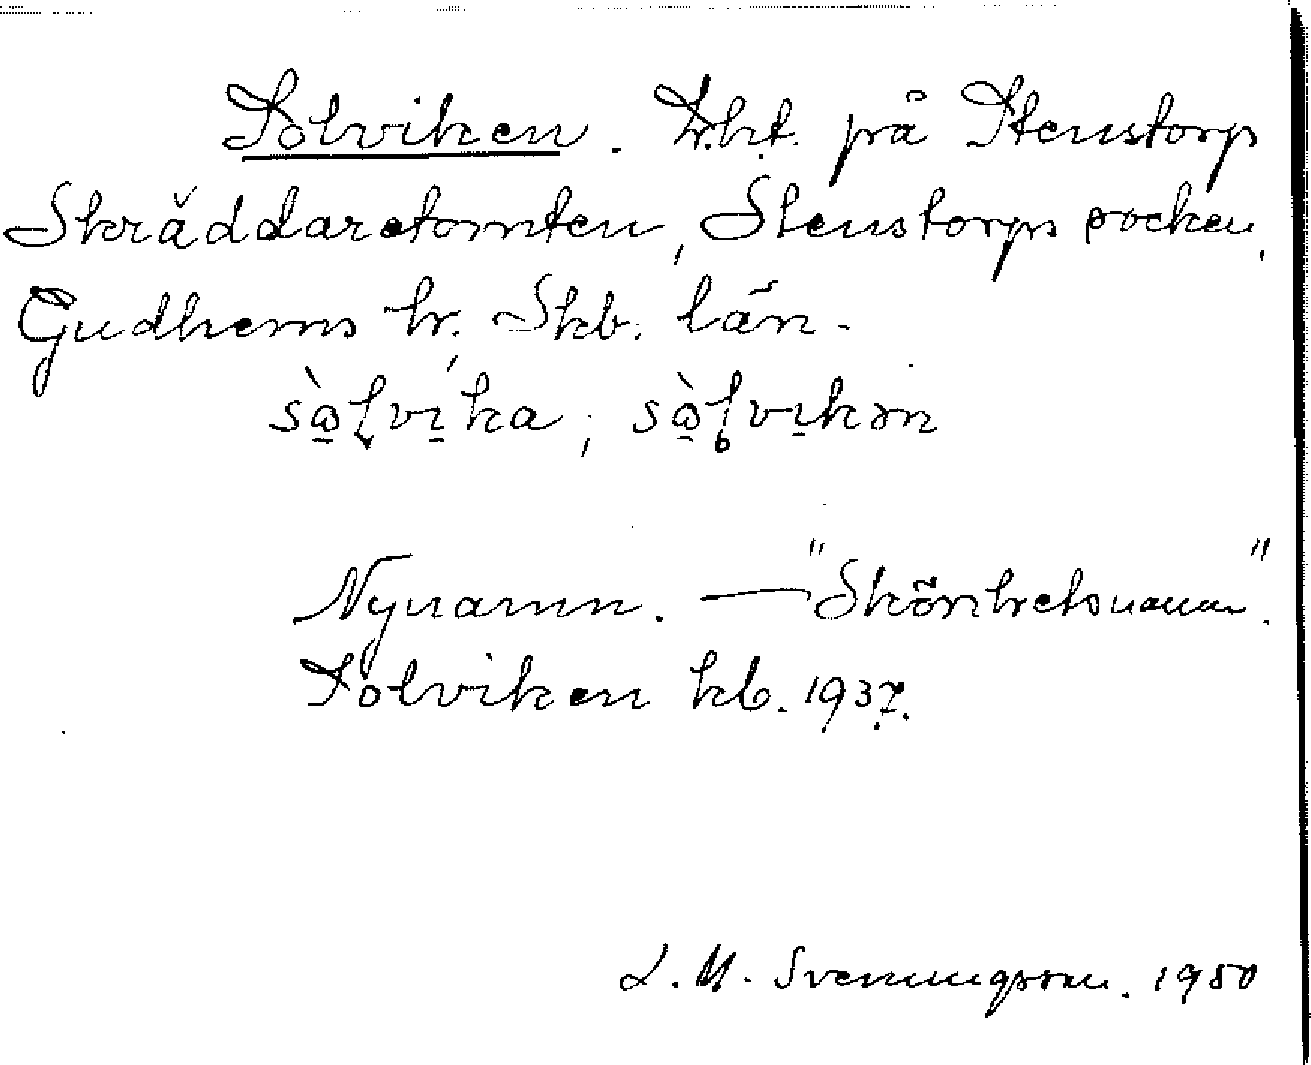 Solviken. Lht. på Stenstorp
Skräddaretomten, Stenstorps socken,
Gudhems hr. Skb. län.
sò̱lvi̱ka; sò̱lvi̱kən
Nynamn. — "Skönhetsnamn".
Solviken kb. 1937.
L. M. Svenungsson. 1950